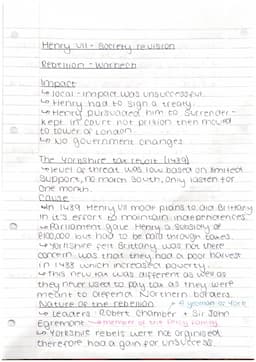 Henry VII - Society revision
Rebellion - Warbeck
Impact
↳ local - impact was unsuccessful.
↳ Henry had to sign a treaty.
↳ Henry pursuaded him to surrender -
kept in court not prition then moved
to tower of London
↳ No government changes
The Yorkshire tax revolt (1489)
↳ level of threat was low based on limited
support, no march south, only lasted for
one month.
Cause
↳ In 1489 Henry VII made plans to aid Brittany
in it's effort to maintain independences
↳ Parliament gave Henry a subsidy of
£100,000 but had to be paid through taxes.
↳ Yorkshire felt Brittany was not there
concern was that they had a poor harvest
in 1488 which increased poverty.
↳ This new tax was different as well as
they never used to pay tax as they were
meant to defend Northern borders.
Nature of the rebellion
↗ A yeoman of York
↳ Leaders: Robert Chamber + Sir John
Egremont → member of the Percy family
↳ Yorkshire rebels were not orginised
therefore had a gain for unsuccess.